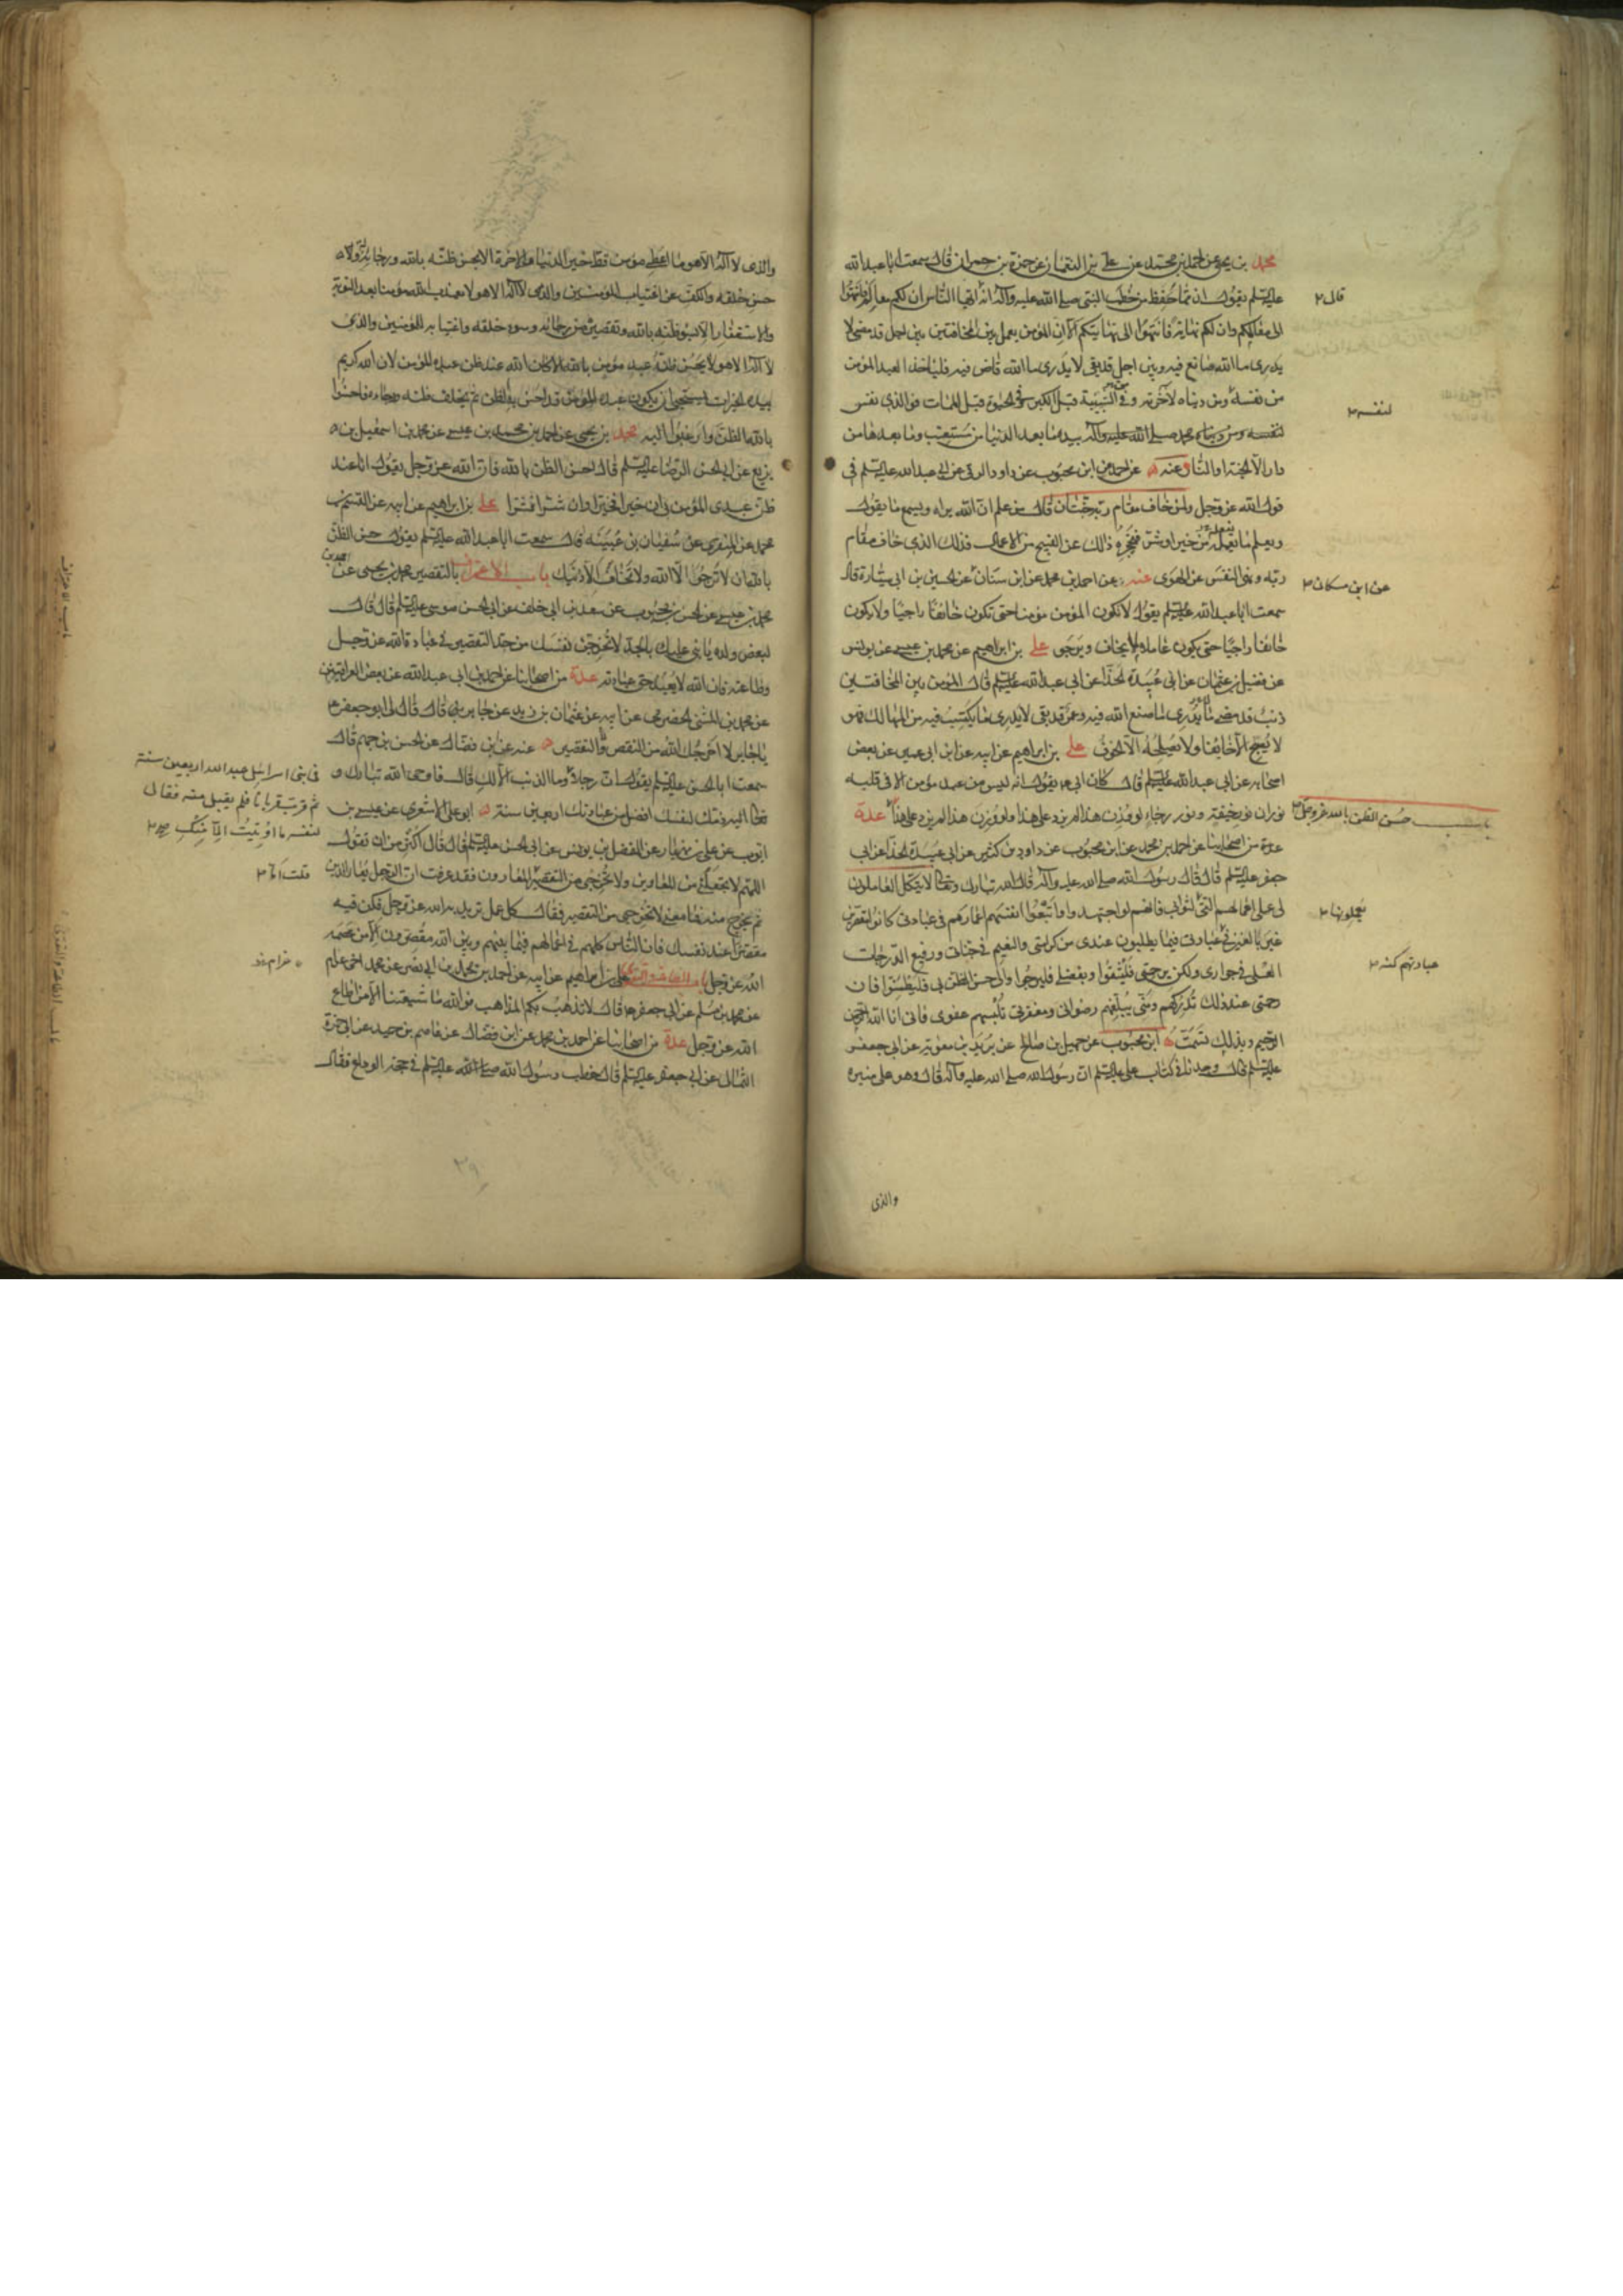 محمد بن يحيى عن احمد بن محمد عن علي بن النعمان عن حمزة بن حمران قال سمعت ابا عبد الله
عليه السلم يقول ان مما حفظ من خطب النبي صلى الله عليه وآله انه ايها الناس ان لكم معالم فانتهوا
قال
الى معالمكم وان لكم نهاية فانتهوا الى نهايتكم الا ان المؤمن يعمل بين المخافتين بين اجل قد مضى لا
يدرى ما الله صانع فيه وبين اجل قد بقى لا يدرى ما الله قاض فيه فلياخذ العبد المؤمن
من نفسه ومن دنياه لآخرته وفي الشبيبة قبل الكبر وفي الحيوة قبل الممات فوالذى نفس
لنفسه
محمد صلى الله عليه وآله بيده ما بعد الدنيا من مستعتب وما بعدها من
دار الا الجنة او النار عنه عن احمد عن ابن محبوب عن داود الرقى عن ابى عبد الله عليه السلم فى
قول الله عز وجل ولمن خاف مقام ربه جنتان قال من علم ان الله يراه ويسمع ما يقول
ويعلم ما يعمله من خير او شر فيحجزه ذلك عن القبيح من الاعمال فذلك الذى خاف مقام
ربه ونهى النفس عن الهوى عنه عن احمد بن محمد عن ابن سنان عن الحسين بن ابى سارة قال
عن ابن مسكان
سمعت ابا عبد الله عليه السلم يقول لا يكون المؤمن مؤمنا حتى يكون خائفا راجيا ولا يكون
خائفا راجيا حتى يكون عاملا لما يخاف ويرجى على بن ابراهيم عن محمد بن عيسى عن يونس
عن فضيل بن عثمان عن ابى عبيدة الحذا عن ابى عبد الله عليه السلم قال المؤمن بين المخافتين
ذنب قد مضى لا يدرى ما صنع الله فيه وعمر قد بقى لا يدرى ما يكتسب فيه من المهالك فهو
لا يصبح الا خائفا ولا يصلحه الا الخوف على بن ابراهيم عن ابيه عن ابن ابى عمير عن بعض
اصحابه عن ابى عبد الله عليه السلم قال كان ابى يقول انه ليس من عبد مؤمن الا فى قلبه
نوران نور خيفة ونور رجاء لو وزن هذا لم يزد على هذا ولو وزن هذا لم يزد على هذا
باب حسن الظن بالله عز وجل
عدة من اصحابنا عن احمد بن محمد عن ابن محبوب عن داود بن كثير عن ابى عبيدة الحذا عن ابى
جعفر عليه السلم قال قال رسول الله صلى الله عليه وآله قال الله تبارك وتعالى لا يتكل العاملون
لى على اعمالهم التى لثوابى فانهم لو اجتهدوا واتبعوا انفسهم اعمارهم فى عبادتى كانوا مقصرين
يعملونها
غير بالغين فى عبادتى فيما يطلبون عندى من كرامتى والنعيم فى جناتى ورفيع الدرجات
عبادتهم كنه
العلى فى جوارى ولكن برحمتى فليثقوا وبفضلى فليرجوا والى حسن الظن بى فليطمئنوا فان
رحمتى عند ذلك تدركهم ومنى يبلغهم رضوانى ومغفرتى تلبسهم عفوى فانى انا الله الرحمن
الرحيم وبذلك تسميت ابن محبوب عن جميل بن صالح عن بريد بن معوية عن ابى جعفر
عليه السلم قال وجدنا فى كتاب على عليه السلم ان رسول الله صلى الله عليه وآله قال وهو على منبره
والذى
والذى لا اله الا هو ما اعطى مؤمن قط خير الدنيا والاخرة الا بحسن ظنه بالله ورجائه له
حسن خلقه والكف عن اغتياب المؤمنين والذى لا اله الا هو لا يعذب الله مؤمنا بعد التوبة
والاستغفار الا بسوء ظنه بالله وتقصيره من رجائه وسوء خلقه واغتيابه للمؤمنين والذى
لا اله الا هو لا يحسن ظن عبد مؤمن بالله الا كان الله عند ظن عبده المؤمن لان الله كريم
بيده الخيرات يستحيى ان يكون عبده المؤمن قد احسن به الظن ثم يخلف ظنه ورجاءه فاحسنوا
بالله الظن وارغبوا اليه محمد بن يحيى عن احمد بن محمد بن عيسى عن محمد بن اسمعيل بن
بزيع عن ابى الحسن الرضا عليه السلم قال احسن الظن بالله فان الله عز وجل يقول انا عند
ظن عبدى المؤمن بى ان خيرا فخيرا وان شرا فشرا على بن ابراهيم عن ابيه عن القسم بن
محمد عن المنقرى عن سفيان بن عيينه قال سمعت ابا عبد الله عليه السلم يقول حسن الظن
بالله ان لا ترجوا الا الله ولا تخاف الا ذنبك باب الاعتراف بالتقصير محمد بن يحيى عن احمد بن
محمد بن عيسى عن الحسن بن محبوب عن سعد بن ابى خلف عن ابى الحسن موسى عليه السلم قال قال
لبعض ولده يا بنى عليك بالجد لا تخرجن نفسك من حد التقصير فى عبادة الله عز وجل
وطاعته فان الله لا يعبد حق عبادته عدة من اصحابنا عن احمد بن ابى عبد الله عن بعض العراقيين
عن محمد بن المثنى الحضرمى عن ابيه عن عثمان بن زيد عن جابر قال قال لى ابو جعفر
يا جابر لا اخرجك الله من النقص والتقصير عنه عن ابن فضال عن الحسن بن جهم قال
سمعت ابا الحسن عليه السلم يقول ان رجلا وما الذنب الا لك قال فاوحى الله تبارك و
فى بنى اسرائيل عبد الله اربعين سنة
ثم قرب قربانا فلم يقبل منه فقال
لنفسه ما اوتيت الا منك
تعالى اليه ذمك لنفسك افضل من عبادتك اربعين سنة ابو على الاشعرى عن عيسى بن
ايوب عن على بن مهزيار عن الفضل بن يونس عن ابى الحسن عليه السلم قال قال اكثر من ان تقول
اللهم لا تجعلنى من المعارين ولا تخرجنى من التقصير المعارون فقد عرفت ان الرجل يعار الدين
قلت اما
ثم يخرج منه فما معنى لا تخرجنى من التقصير فقال كل عمل تريد به الله عز وجل فكن فيه
مقصرا عند نفسك فان الناس كلهم فى اعمالهم فيما بينهم وبين الله مقصرون الا من عصمه
الله عز وجل باب الطاعة والتقوى على بن ابراهيم عن ابيه عن احمد بن محمد بن ابى نصر عن محمد اخى عرام
عن محمد بن مسلم عن ابى جعفر قال لا تذهب بكم المذاهب فوالله ما شيعتنا الا من اطاع
الله عز وجل عدة من اصحابنا عن احمد بن محمد عن ابن فضال عن عاصم بن حميد عن ابى حمزة
الثمالى عن ابى جعفر عليه السلم قال خطب رسول الله صلى الله عليه السلم فى حجة الوداع فقال